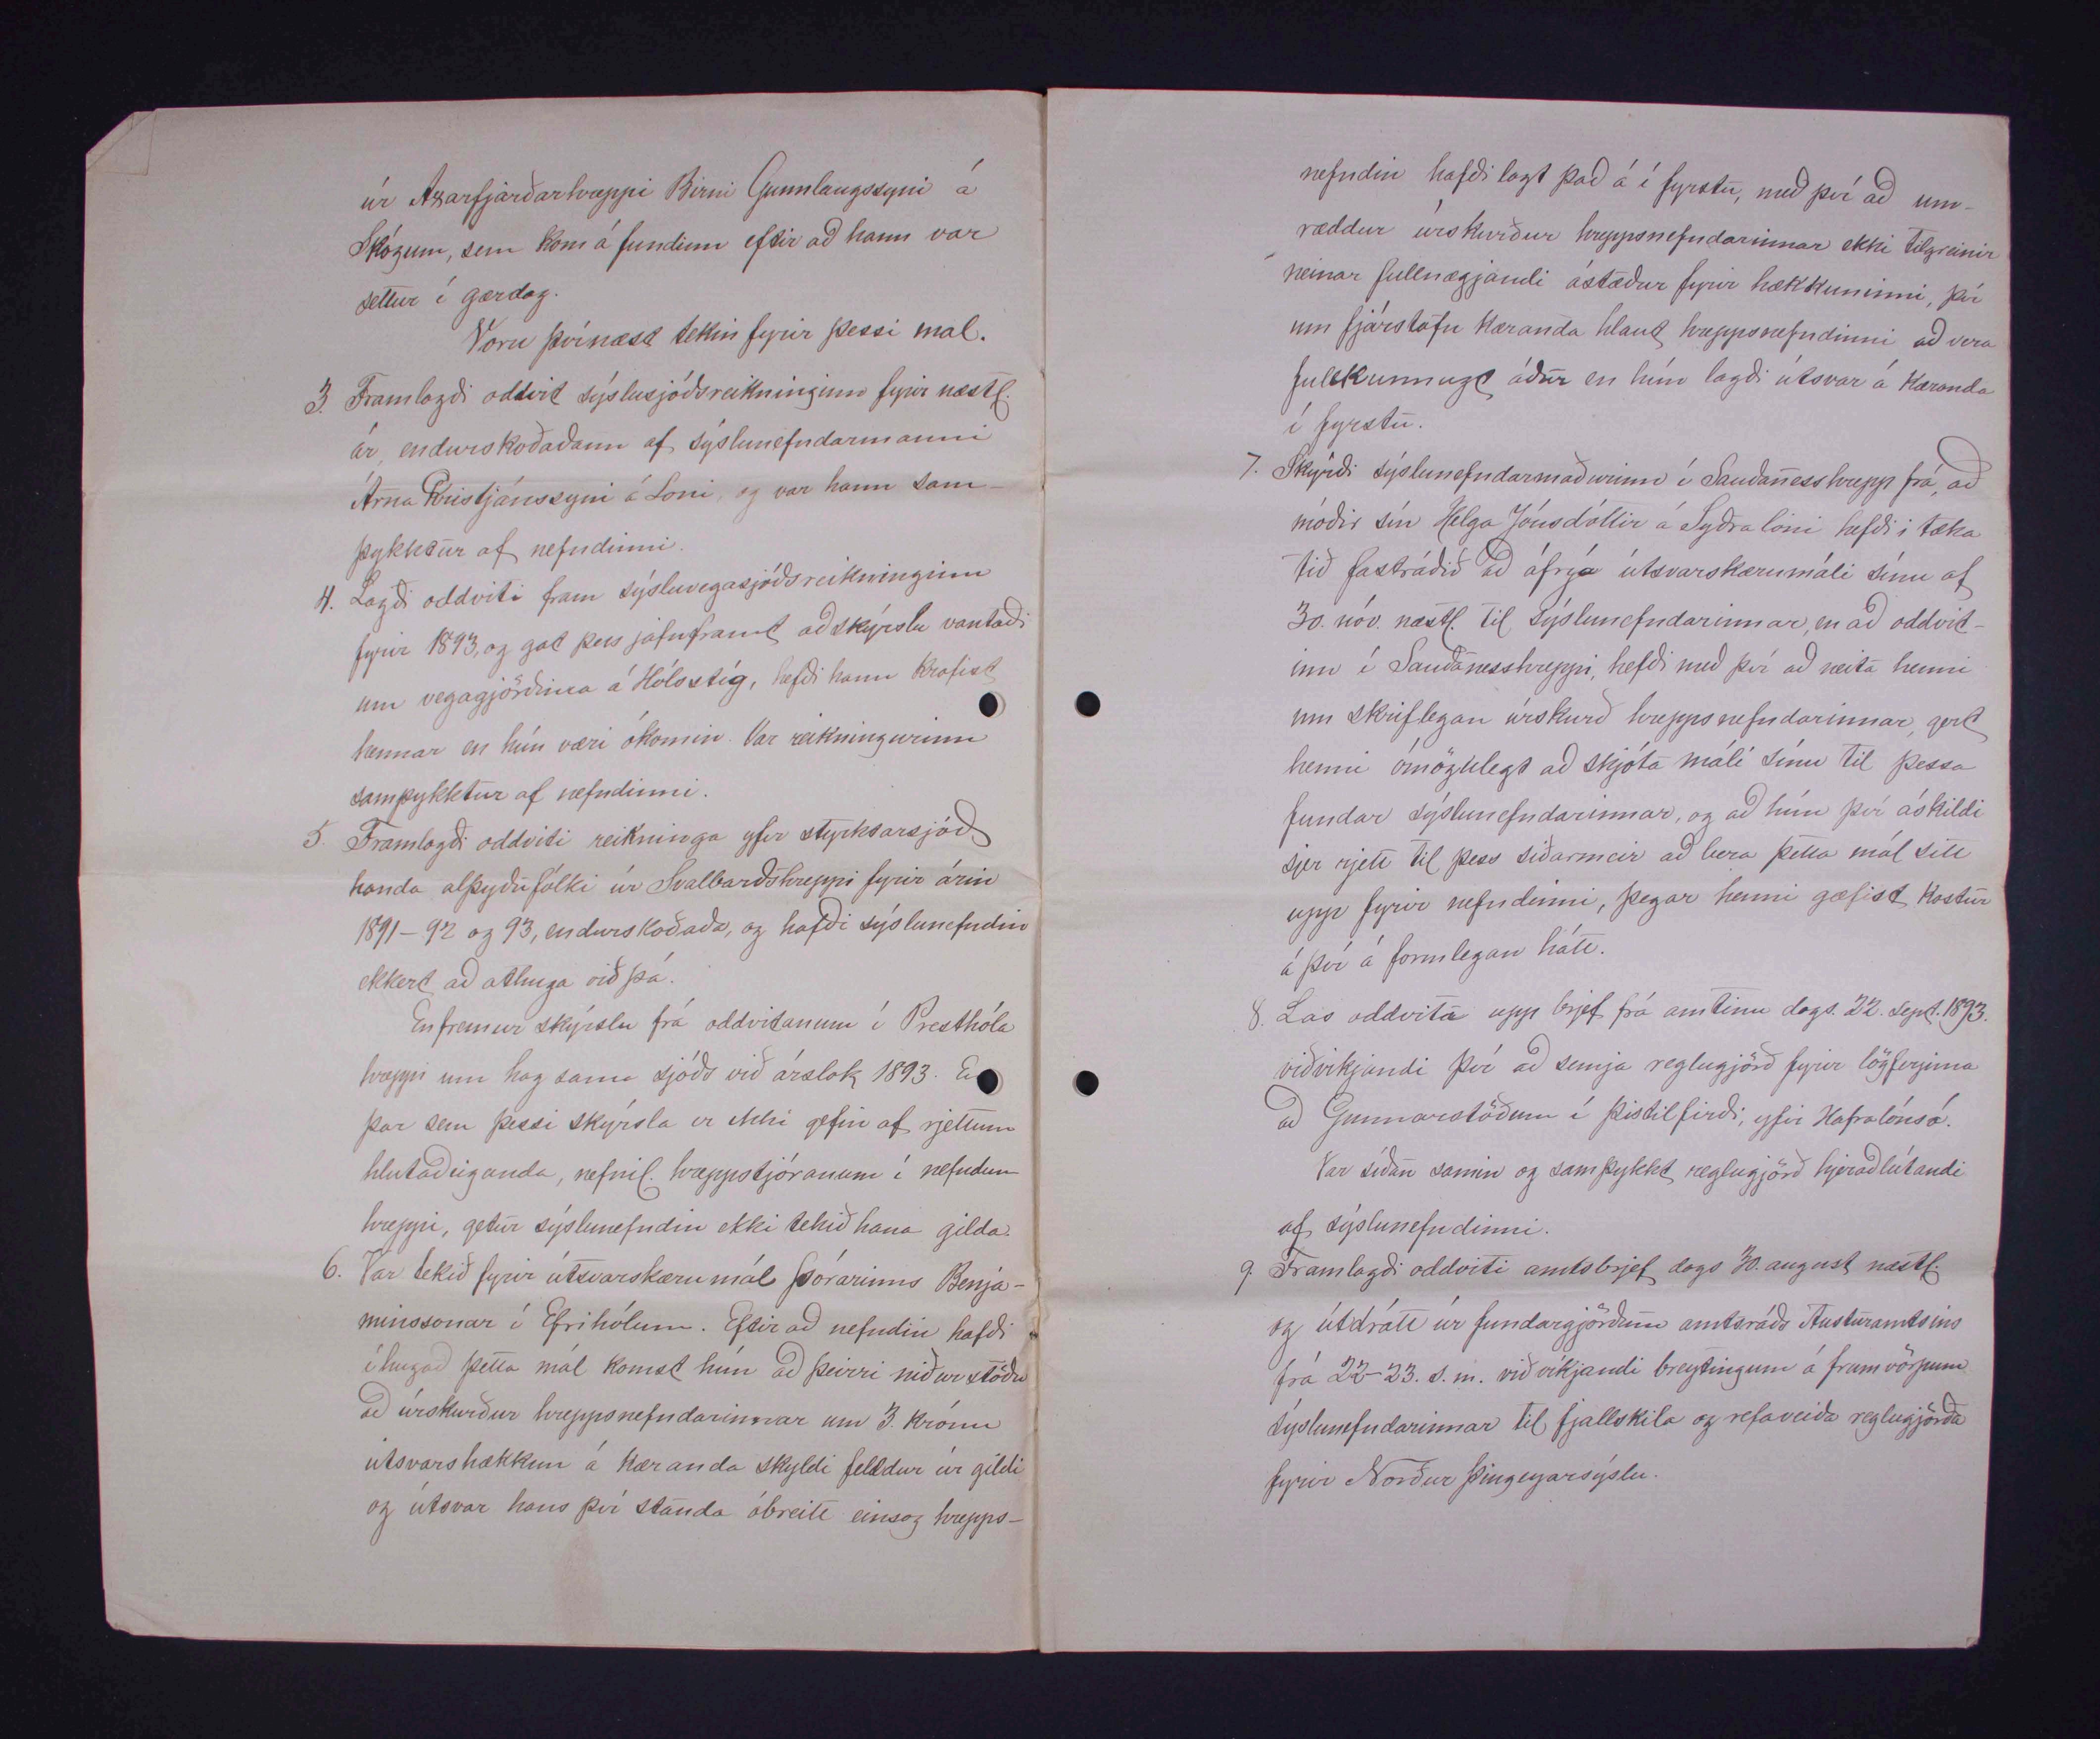 úr Axarfjarðarhreppi Birni Gunnlaugssyni á
Skógum, sem kom á fundinn eftir að hann var
settur í gærdag.
Voru þvínæst tekin fyrir þessi mál.
3. Framlagði oddvit sýslusjóðsreikninginn fyrir næstl.
ár, endurskoðaðann af sýslunefndarmanni
Árna Kristjánssyni á Lóni, og var hann sam-
þykktur af nefndinni.
4. Lagði oddviti fram sýsluvegasjóðsreikninginn
fyrir 1893, og gat þess jafnframt að skýrslu vantaði
um vegagjörðina á Hólsstíg, hefði hann krafist
hennar en hún væri ókomin. Var reikningurinn
samþykktur af nefndinni.
5. Framlagði oddviti reikninga yfir styrktarsjóð
handa alþýðufólki úr Svalbarðshreppi fyrir árin
1891-92 og 93, endurskoðaða, og hafði sýslunefndin
ekkert að athuga við þá.
Enfremur skýrslu frá oddvitanum í Presthóla
hreppi um hag sama sjóðs við árslok 1893. En
þar sem þessi skýrsla er ekki gefin af rjettum
hlutaðeiganda, nefnil. hreppstjóranum í nefndum
hreppi, getur sýslunefndin ekki tekið hana gilda.
6. Var tekið fyrir útsvarskærumál Þórarinns Benja-
mínssonar í Efrihólum. Eftir að nefndin hafði
íhugað þetta mál komst hún að þeirri niðurstöðu
að úrskurður hreppsnefndarinnar um 3. krónu
útsvarshækkun á kæranda skyldi felldur úr gildi
og útsvar hans því standa óbreitt einsog hrepps-
nefndin hafði lagt það á í fyrstu, með því að um-
ræddur úrskurður hreppsnefndarinnar ekki tilgreinir
neinar fullnægjandi ástæður fyrir hækkuninni, því
um fjárstofn kæranda hlaut hreppsnefndinni að vera
fullkunnugt áður en hún lagði útsvar á kæranda
í fyrstu.
7. Skýrði sýslunefndarmaðurinn í Sauðanesshrepp frá, að
móðir sín Helga Jónsdóttir á Syðralóni hefði í tæka
tíð fastráðið að áfrýa útsvarskærumáli sínu af
30. nóv. næstl. til sýslunefndarinnar, en að oddvit-
inn í Sauðanesshreppi, hefði með því að neita henni
um skriflegan úrskurð hreppsnefndarinnar, gert
henni ómögulegt að skjóta máli sínu til þessa
fundar sýslunefndarinnar, og að hún því áskildi
sjer rjett til þess síðarmeir að bera þetta mál sitt
upp fyrir nefndinni, þegar henni gæfist kostur
á því á formlegan hátt.
8. Las oddviti upp brjef frá amtinu dags. 22. sept. 1893.
viðvíkjandi því að semja reglugjörð fyrir lögferjuna
að Gunnarstöðum í Þistilfirði, yfir Hafralónsá.
Var síðan samin og samþykkt reglugjörð hjeraðlútandi
af sýslunefndinni.
9. Framlagði oddviti amtsbrjef dags 30. august næstl.
og útdrátt úr fundargjörðum amtsráðs Austuramtsins
frá 22-23. s. m. viðvíkjandi breytingum á frumvörpum
sýslunefndarinnar til fjallskila og refaveiða reglugjörða
fyrir Norður Þingeyarsýslu.